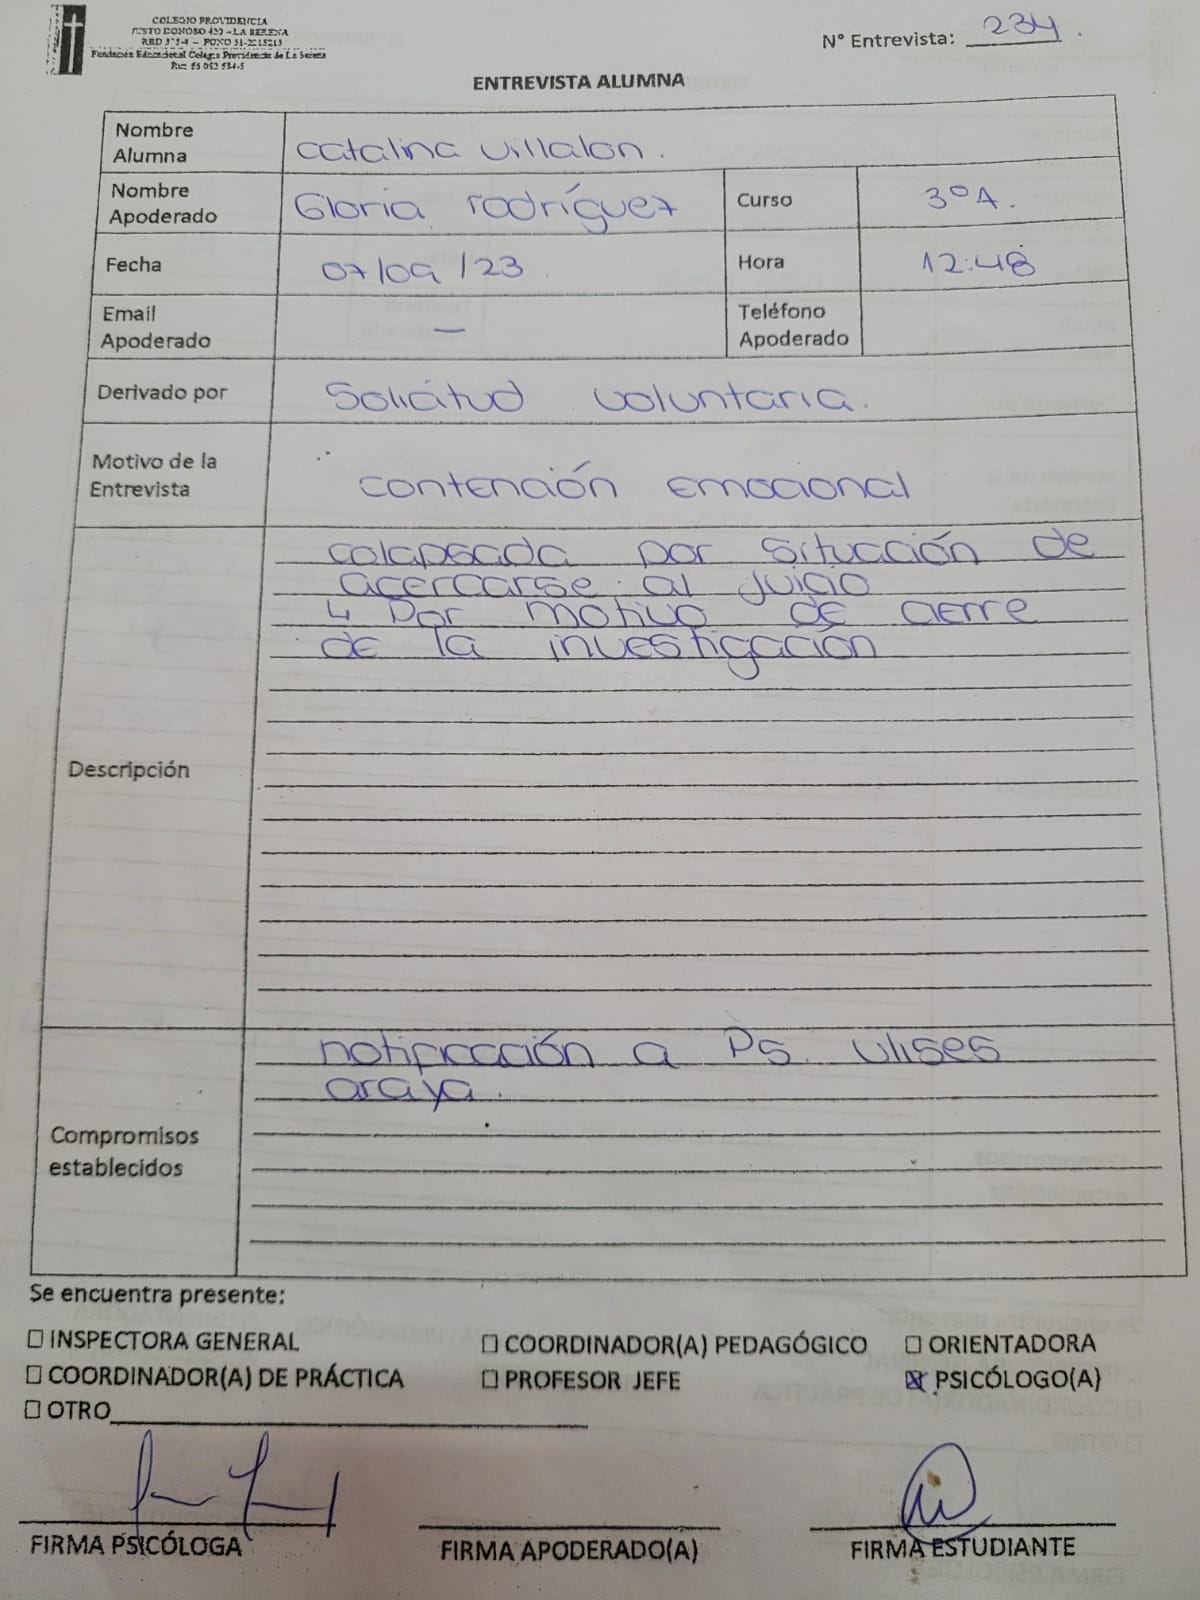 COLEGIO PROVIDENCIA
JUSTO DONOSO 420 - LA SERENA
Fundación Educacional Colegio Providencia de La Serena
N° Entrevista: 234.
ENTREVISTA ALUMNA
Nombre Alumna Catalina Villalon.
Nombre Apoderado Gloria rodríguez Curso 3°A.
Fecha 07/09/23 Hora 12:48
Email Apoderado — Teléfono Apoderado
Derivado por Solicitud voluntaria.
Motivo de la Entrevista contención emocional
Descripción
colapsada por situación de
acercarse al juicio
↳ Por motivo de cierre
de la investigación
Compromisos establecidos
notificación a Ps. Ulises
araya.
Se encuentra presente:
☐ INSPECTORA GENERAL ☐ COORDINADOR(A) PEDAGÓGICO ☐ ORIENTADORA
☐ COORDINADOR(A) DE PRÁCTICA ☐ PROFESOR JEFE ☒ PSICÓLOGO(A)
☐ OTRO
FIRMA PSICÓLOGA FIRMA APODERADO(A) FIRMA ESTUDIANTE